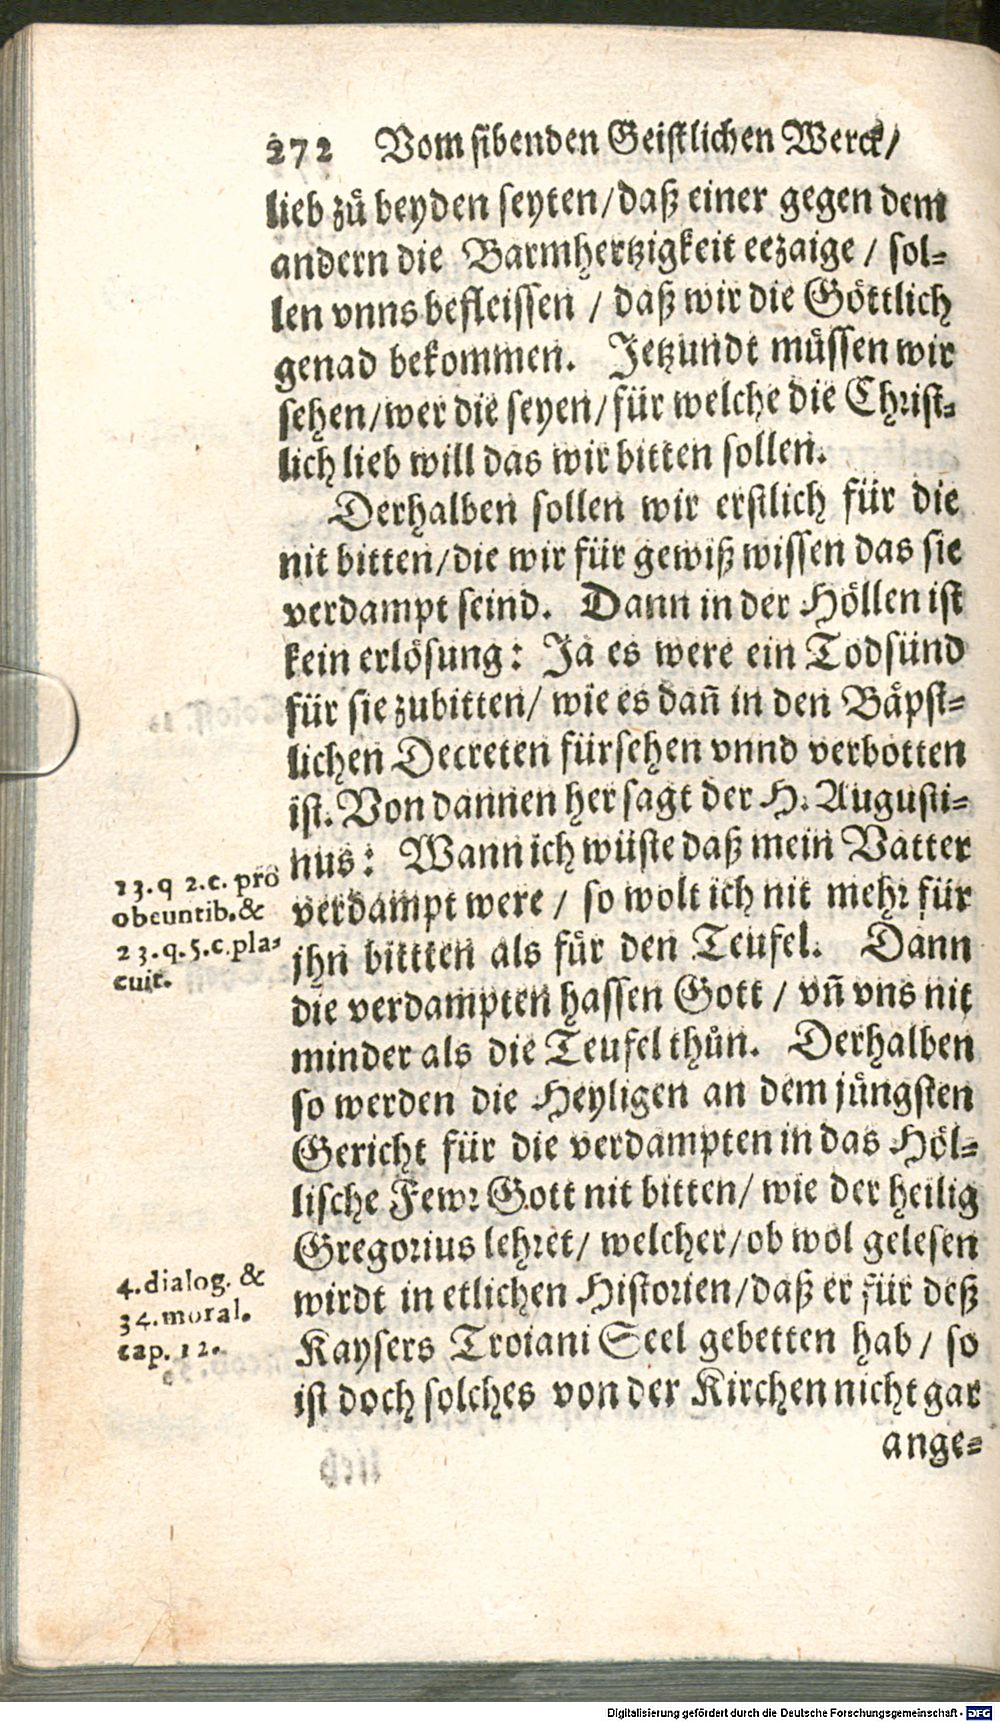 272 Vom sibenden Geistlichen Werck/
lieb zů beyden seyten/daß einer gegen dem
andern die Barmhertzigkeit eezaige / sol-
len vnns befleissen / daß wir die Göttlich
genad bekommen. Jetzundt müssen wir
sehen/wer die seyen/für welche die Christ-
lich lieb will das wir bitten sollen.
Derhalben sollen wir erstlich für die
nit bitten/die wir für gewiß wissen das sie
verdampt seind. Dann in der Höllen ist
kein erlösung: Ja es were ein Todsünd
für sie zubitten/ wie es dañ in den Bäpst-
lichen Decreten fürsehen vnnd verbotten
ist. Von dannen her sagt der H. Augusti-
nus: Wann ich wüste daß mein Vatter
verdampt were / so wolt ich nit mehr für
jhn bittten als für den Teufel. Dann
die verdampten hassen Gott / vñ vns nit
minder als die Teufel thůn. Derhalben
so werden die Heyligen an dem jüngsten
Gericht für die verdampten in das Höl-
lische Fewr Gott nit bitten/ wie der heilig
Gregorius lehret/ welcher/ob wol gelesen
wirdt in etlichen Historien/daß er für deß
Kaysers Troiani Seel gebetten hab / so
ist doch solches von der Kirchen nicht gar
ange-
13. q 2. c. pro
obeuntib. &
23. q. 5. c. pla-
cuit.
4. dialog. &
34. moral.
cap. 12.
Digitalisierung gefördert durch die Deutsche Forschungsgemeinschaft - DFG